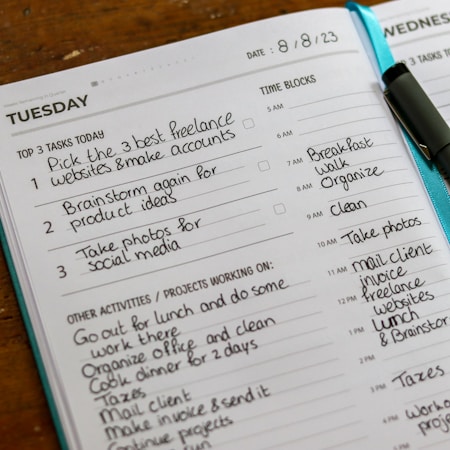 TUESDAY
DATE : 8/8/23
TOP 3 TASKS TODAY
1 Pick the 3 best freelance
websites & make accounts
2 Brainstorm again for
product ideas
3 Take photos for
social media
OTHER ACTIVITIES / PROJECTS WORKING ON:
Go out for lunch and do some
work there
Organize office and clean
Cook dinner for 2 days
Taxes
Mail client
Make invoice & send it
Continue projects
run
TIME BLOCKS
5 AM
6 AM
7 AM Breakfast
walk
8 AM Organize
9 AM Clean
10 AM Take photos
11 AM Mail client
invoice
12 PM freelance
websites
1 PM Lunch
& Brainstor
2 PM
3 PM Taxes
4 PM Worko
proje
WEDNES
TOP 3 TASKS TO